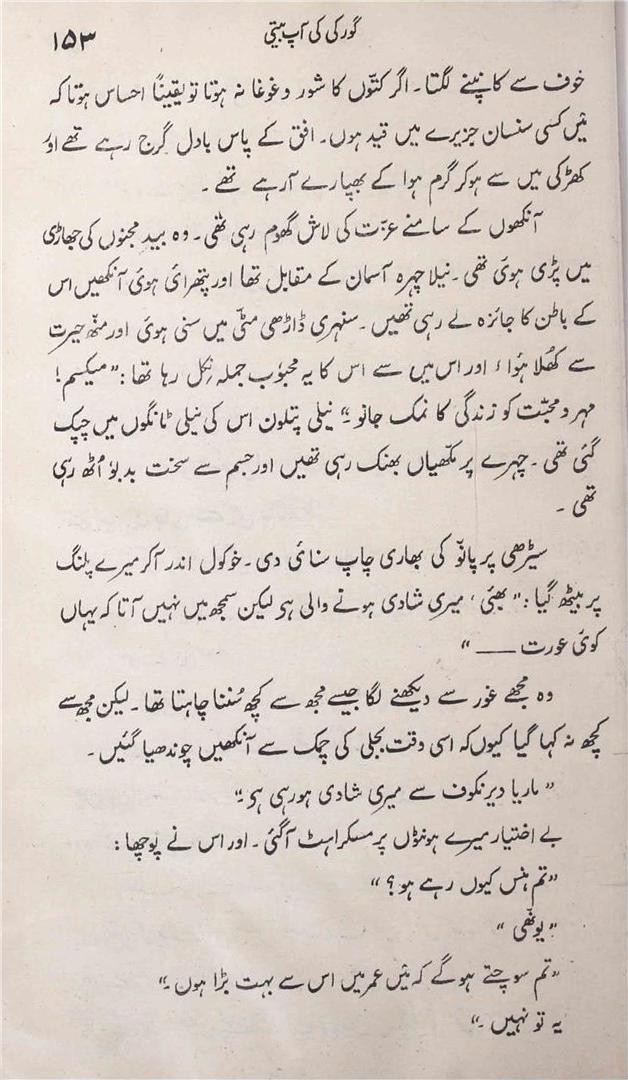 ۱۵۳
گورکی کی آپ بیتی
خوف سے کانپنے لگتا۔ اگر کتّوں کا شور و غوغا نہ ہوتا تو یقیناً احساس ہوتا کہ
مَیں کسی سنسان جزیرے میں قید ہوں۔ افق کے پاس بادل گرج رہے تھے اور
کھڑکی میں سے ہوکر گرم ہوا کے بھپارے آرہے تھے۔
آنکھوں کے سامنے عزّت کی لاش گھوم رہی تھی۔ وہ بید مجنوں کی جھاڑی
میں پڑی ہوئی تھی۔ نیلا چہرہ آسمان کے مقابل تھا اور پتھرائی ہوئی آنکھیں اس
کے باطن کا جائزہ لے رہی تھیں۔ سنہری ڈاڑھی مٹّی میں سنی ہوئی اور منہ حیرت
سے کھُلا ہُواء اور اس میں سے اس کا یہ محبوب جملہ نِکل رہا تھا: ”میکسم!
مہر و محبّت کو زندگی کا نمک جانو۔“ نیلی پتلون اس کی نیلی ٹانگوں میں چپک
گئی تھی۔ چہرے پر مکھیاں بھنک رہی تھیں اور جسم سے سخت بدبو اُٹھ رہی
تھی۔
سیڑھی پر پانْو کی بھاری چاپ سنائی دی۔ خوکول اندر آکر میرے پلنگ
پر بیٹھ گیا: ”بھئی، میری شادی ہونے والی ہی لیکن سمجھ میں نہیں آتا کہ یہاں
کوئی عورت ——“
وہ مجھے غور سے دیکھنے لگا جیسے مجھ سے کچھ سُننا چاہتا تھا۔ لیکن مجھ سے
کچھ نہ کہا گیا کیوں کہ اسی وقت بجلی کی چمک سے آنکھیں چوندھیا گئیں۔
”ماریا دیرنکوف سے میری شادی ہورہی ہی۔“
بے اختیار میرے ہونٹوں پر مسکراہٹ آگئی۔ اور اس نے پوچھا:
”تم ہنس کیوں رہے ہو؟“
”یونہی“
”تم سوچتے ہوگے کہ مَیں عمر میں اس سے بہت بڑا ہون۔“
یہ تو نہیں۔“